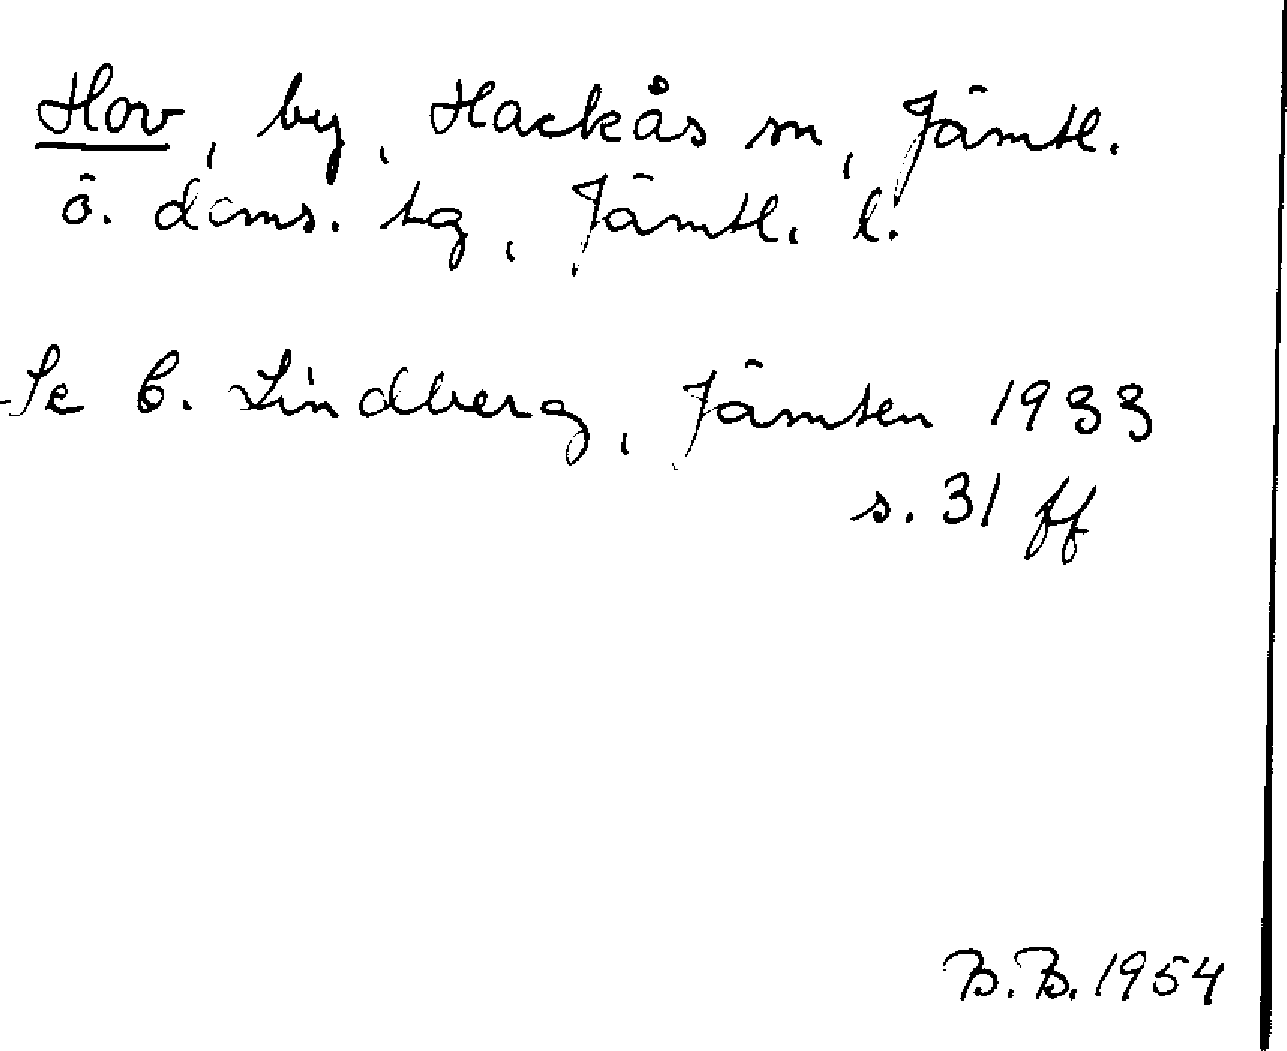 Hov, by, Hackås sn, Jämtl.
ö. doms. tg, Jämtl. l.
Se C. Lindberg, Jämten 1933
s. 31 ff
B.B. 1954